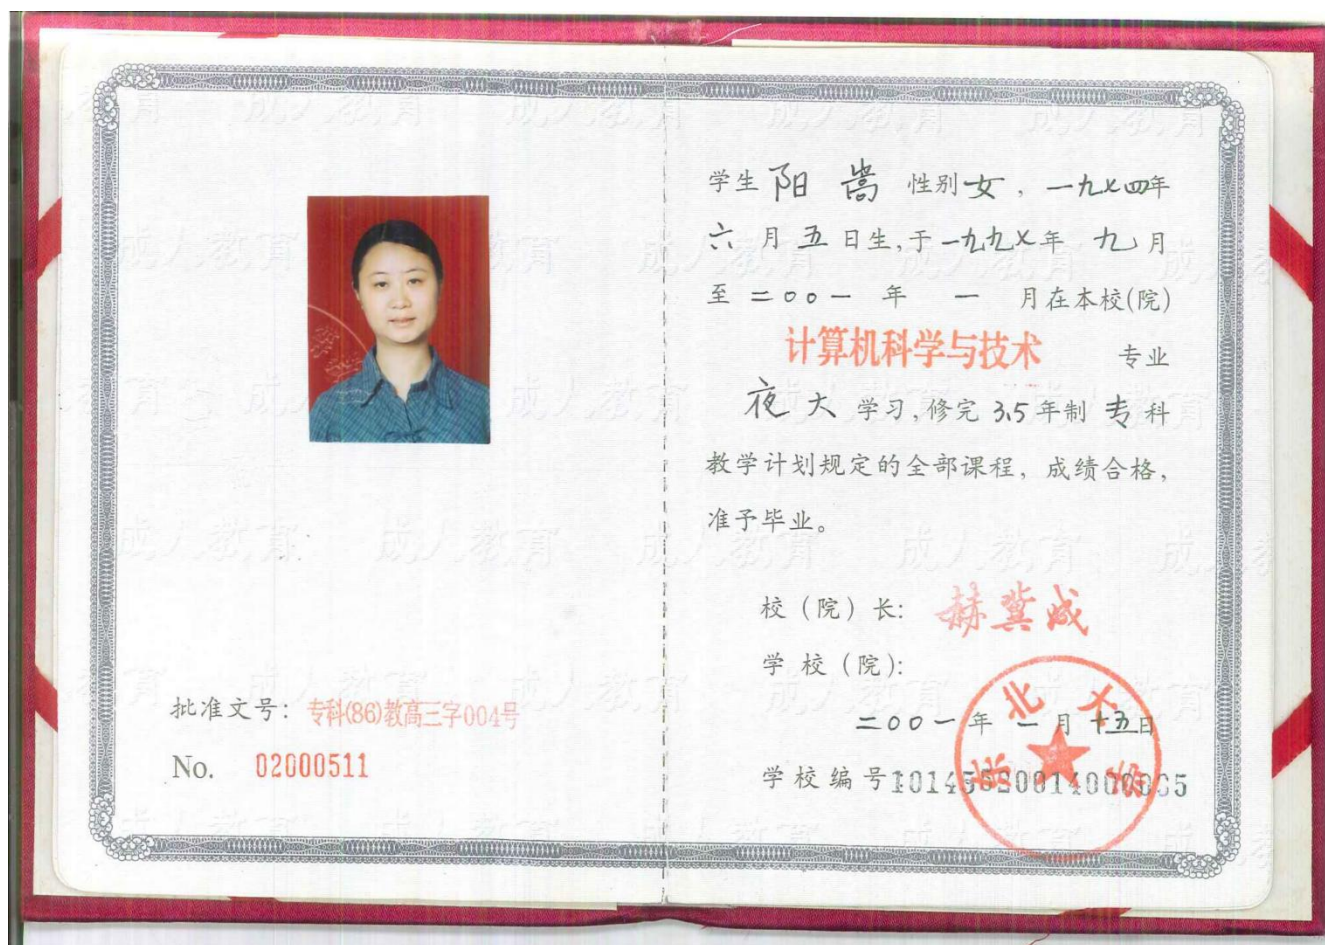 批准文号: 专科(86)教高三字004号
No. 02000511
学生 阳嵩 性别女, 一九七四年
六月五日生,于一九九七年 九月
至二〇〇一年 一 月在本校(院)
计算机科学与技术 专业
夜大学习,修完3.5年制专科
教学计划规定的全部课程, 成绩合格,
准予毕业。
校 (院) 长: 赫冀成
学 校 (院):
东北大学
二〇〇一年 一月十五日
学校编号
成人教育